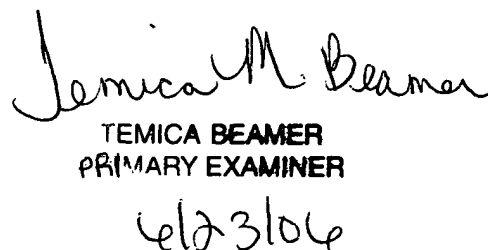 Temica M. Beamer
TEMICA BEAMER
PRIMARY EXAMINER
6/23/06